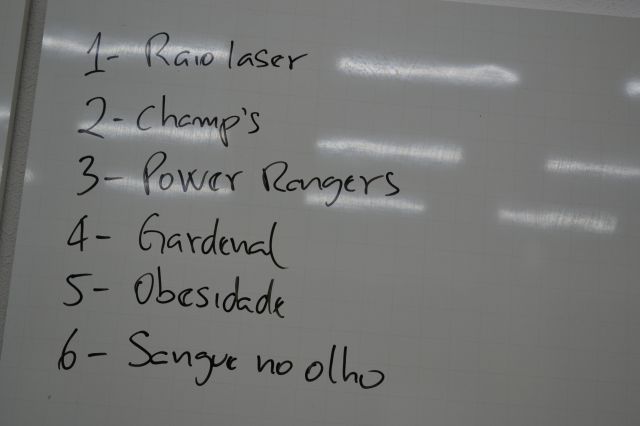 1- Raio laser
2- Champ's
3- Power Rangers
4- Gardenal
5- Obesidade
6- Sangue no olho